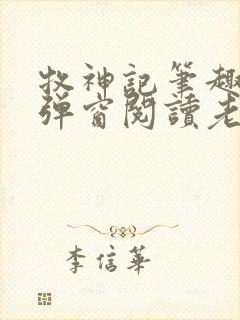 牧神記筆趣
彈窗閱讀老
李信華